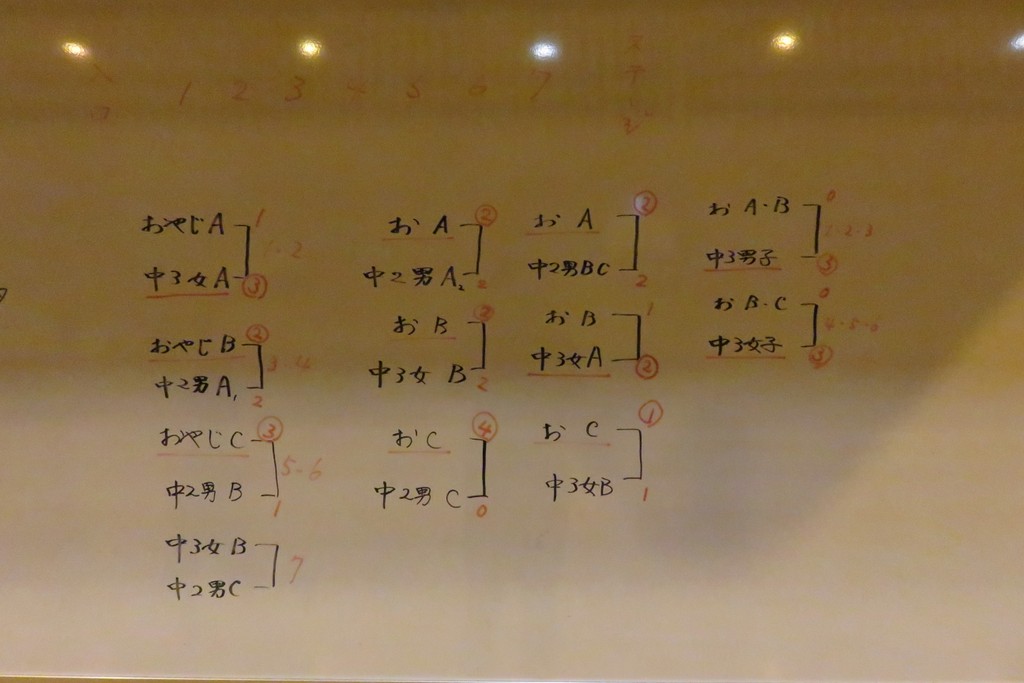 1 2 3 4 5 6 7
おやじA 1
1-2
中3女A ③
おやじB ②
3-4
中2男A₁ 2
おやじC ③
5-6
中2男B 1
中3女B
7
中2男C
お A ②
中2男A₂ 2
お B ②
中3女 B 2
お C ④
中2男 C 0
お A ②
中2男BC 2
お B 1
中3女A ②
お C ①
中3女B 1
お A・B 0
1-2-3
中3男子 ③
お B・C 0
4-5-6
中3女子 ③